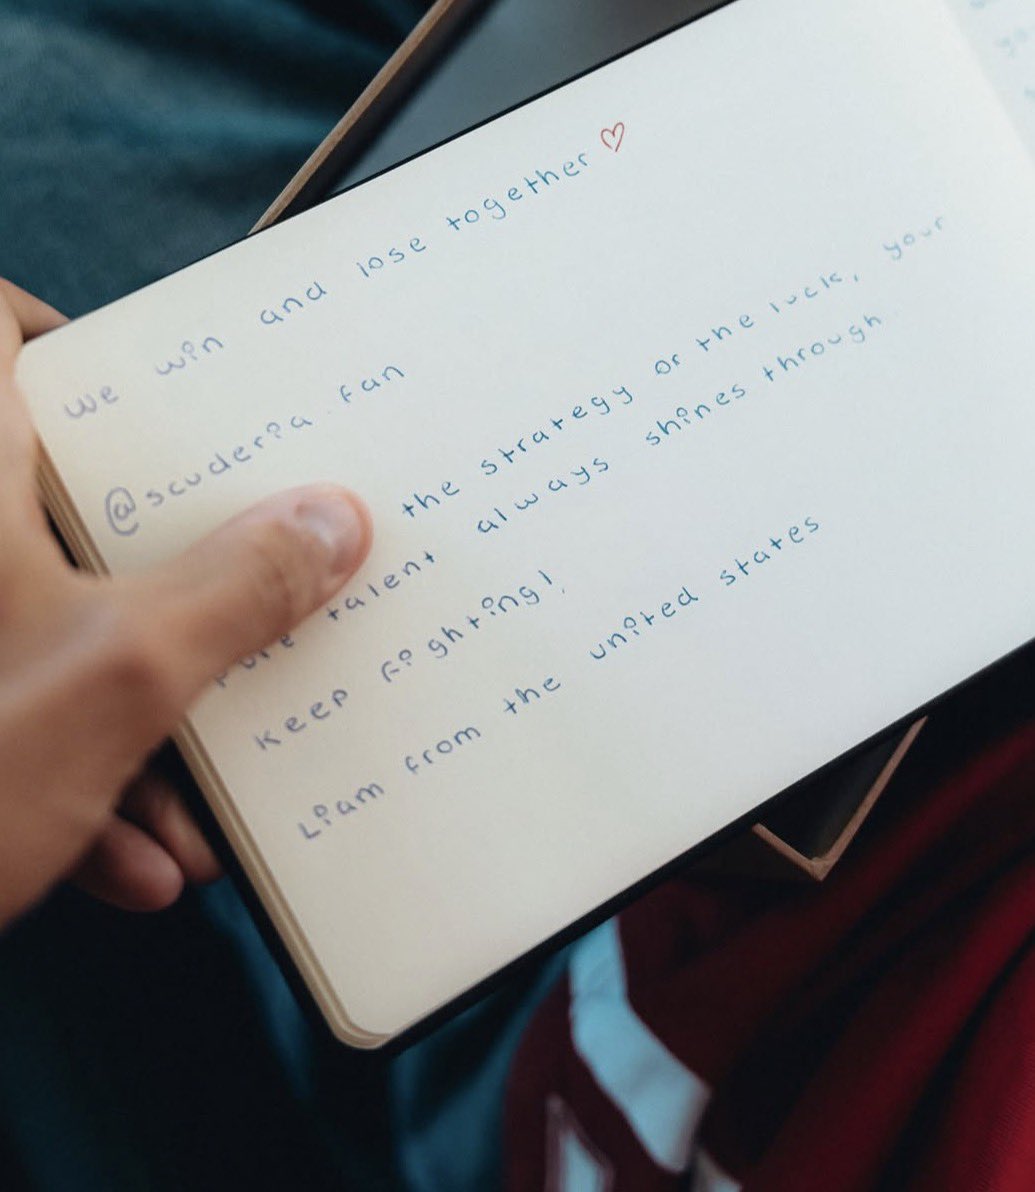 We win and lose together ♡
@scuderia.fan
the strategy or the luck, your
pure talent always shines through
Keep fighting!
Liam from the united states